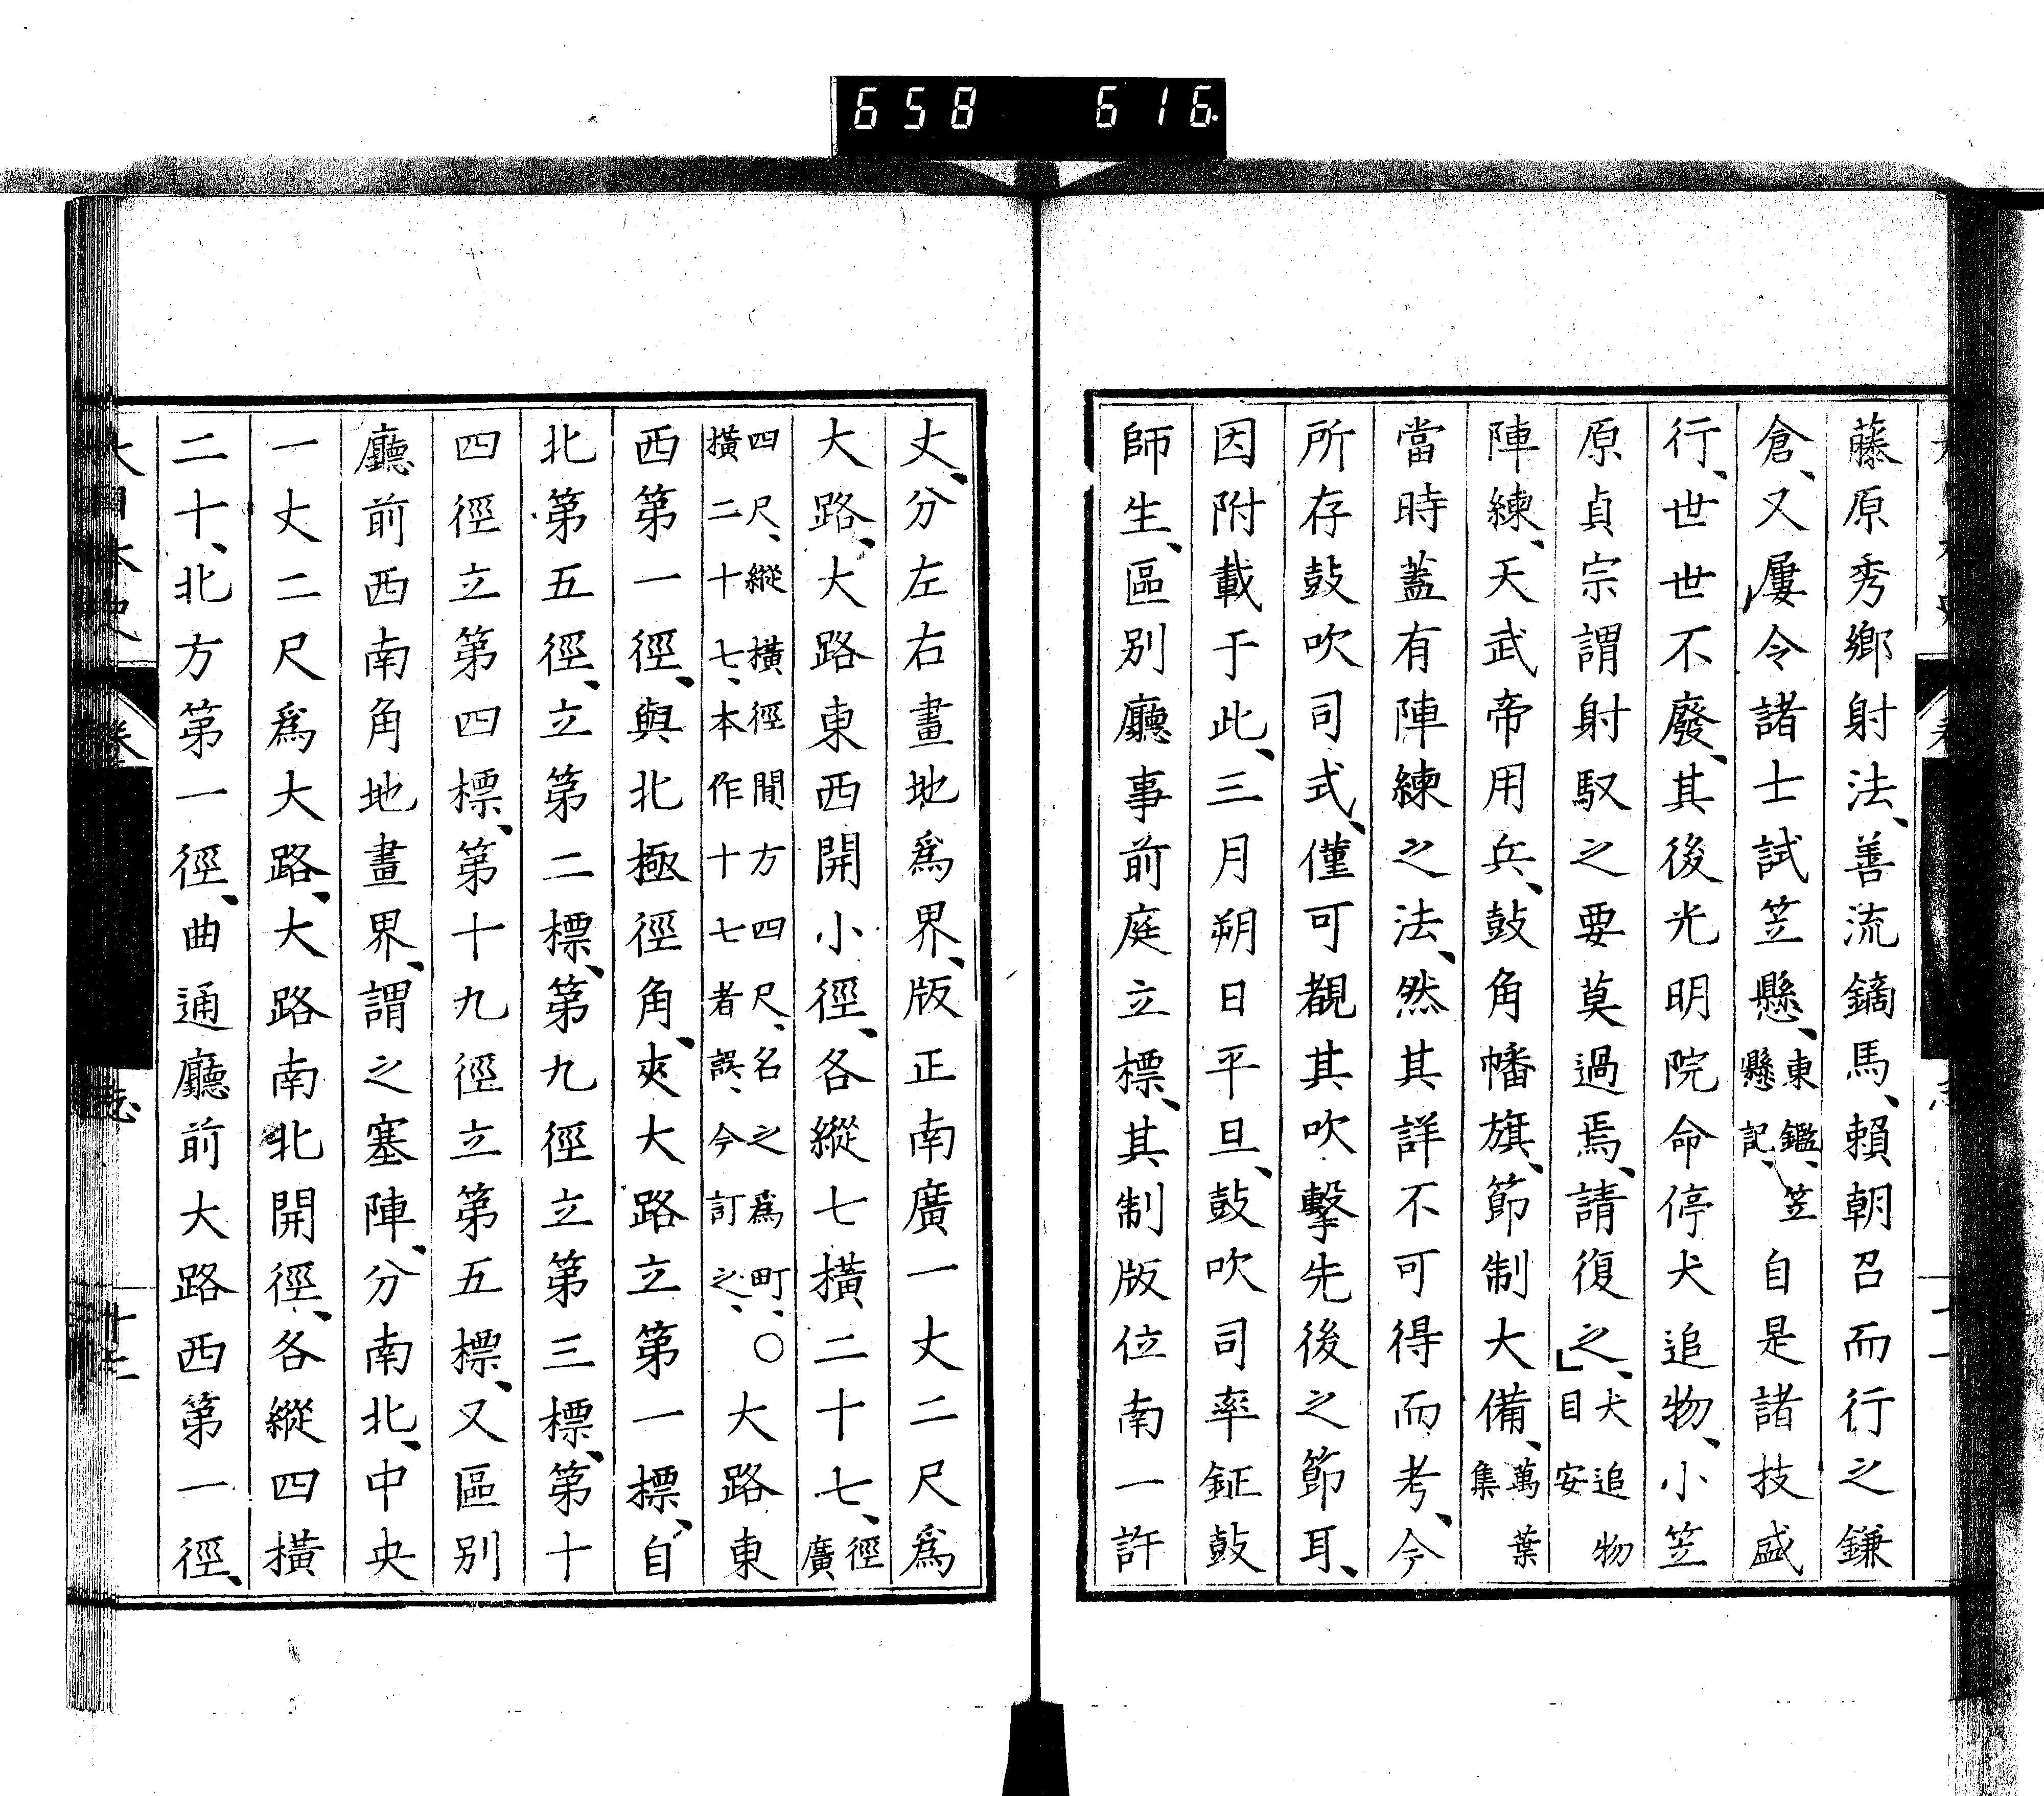 658 616
藤原秀鄕射法、善流鏑馬、賴朝召而行之鎌
倉、又屢令諸士試笠懸、東鑑、笠懸記、自是諸技盛
行、世世不廢、其後光明院命停犬追物、小笠
原貞宗謂射馭之要莫過焉、請復之、犬追物目安」
陣練、天武帝用兵、鼓角幡旗、節制大備、萬葉集
當時蓋有陣練之法、然其詳不可得而考、今
所存鼓吹司式、僅可覩其吹擊先後之節耳、
因附載于此、三月朔日平旦、鼓吹司率鉦鼓
師生、區別廳事前庭立標、其制版位南一許
丈、分左右畫地爲界、版正南廣一丈二尺爲
大路、大路東西開小徑、各縱七橫二十七、徑廣
四尺、縱橫徑間方四尺、名之爲町、〇橫二十七、本作十七者誤、今訂之、大路東
西第一徑、與北極徑角、夾大路立第一標、自
北第五徑、立第二標、第九徑立第三標、第十
四徑立第四標、第十九徑立第五標、又區別
廳前西南角地畫界、謂之塞陣、分南北、中央
一丈二尺爲大路、大路南北開徑、各縱四橫
二十、北方第一徑、曲通廳前大路西第一徑、
大日本史